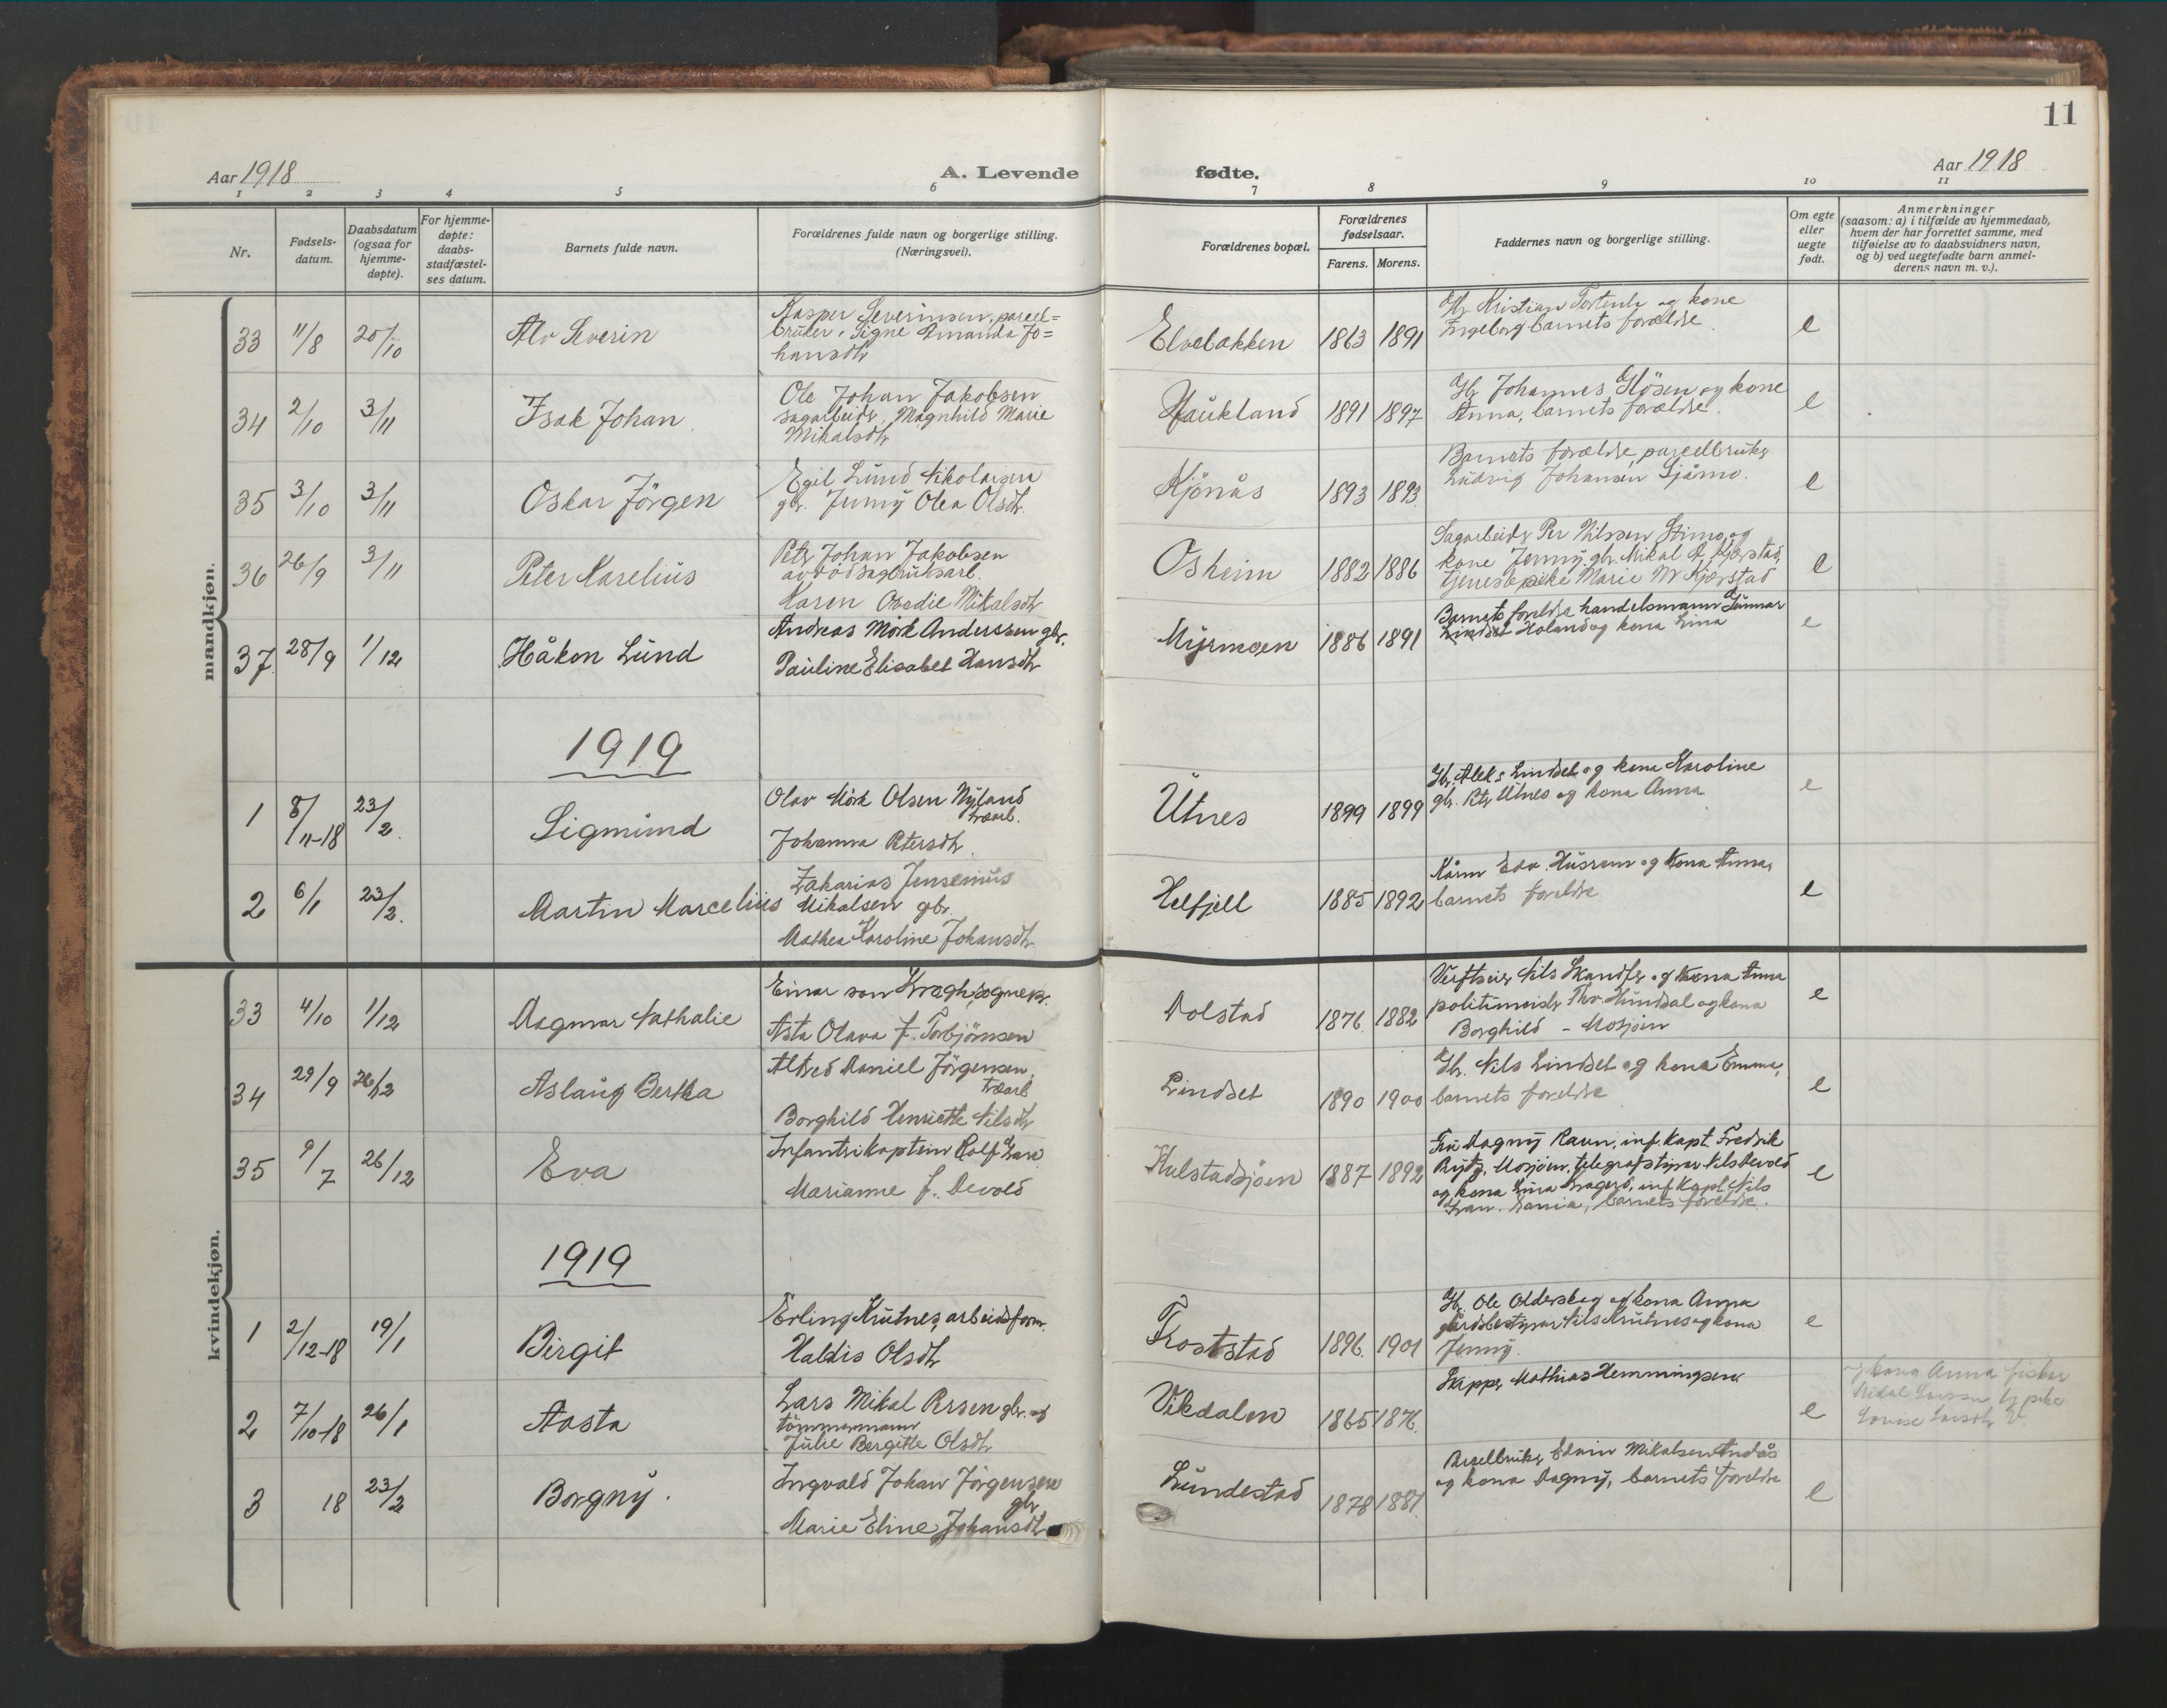 11
Aar 1918
A. Levende
fødte.
Aar 1918
1 2 3 4 5 6 7 8 9 10 11
Nr.
Fødsels-
datum.
Daabsdatum
(ogsaa for
hjemme-
døpte).
For hjemme-
døpte:
daabs-
stadfæstel-
ses datum.
Barnets fulde navn.
Forældrenes fulde navn og borgerlige stilling.
(Næringsvei).
Forældrenes bopæl.
Forældrenes
fødselsaar.
Farens. Morens.
Faddernes navn og borgerlige stilling.
Om egte
eller
uegte
født.
Anmerkninger
(saasom: a) i tilfælde av hjemmedaab,
hvem der har forrettet samme, med
tilføielse av to daabsvidners navn,
og b) ved uegtefødte barn anmel-
derens navn m. v.).
mandkjøn.
33 11/8 20/10 Alv Severin
Kasper Severinsen, parcel=
bruker, Signe Amanda Jo=
hansdtr
Elvebakken 1863 1891
Gbr Kristian og kone
Ingeborg barnets forældre.
e
34 2/10 3/11 Isak Johan
Ole Johan Jakobsen
sagarbeider, Magnhild Marie
Mikalsdtr
Haukland 1891 1897
Gbr Johannes Glösen og kone
Anna, barnets forældre.
e
35 3/10 3/11 Oskar Jörgen
Egil Lund Nikolaisen
gbr. Jenny Olea Olsdtr.
Kjönås 1893 1893
Barnets forældre, parcelbruker
Ludvig Johansen Sjåmo.
e
36 26/9 3/11 Peter Karelius
Peter Johan Jakobsen
avdöd sagbruksarb.
Karen Ovedie Mikalsdtr
Osheim 1882 1886
Sagarbeider Per Nilssen Stimo og
kone Jenny gbr. Mikal A. Kjærstad,
tjenestepike Marie M Kjærstad
e
37 28/9 1/12 Håkon Lund
Andreas Mörk Anderssen gbr.
Pauline Elisabet Hansdtr
Myrmoen 1886 1891
Barnets foreldre handelsmann Gunnar
Lindset Holand og kona Lina
e
1919
1 8/11-18 23/2. Sigmund
Olav Mörk Olsen Nyland
træarb.
Johanna Petersdtr.
Utnes 1899 1899
Gbr. Aleks Lindset og kona Karoline
gbr. Petr Utnes og kona Anna
e
2 6/1 23/2. Martin Marcelius
Zakarias Jensenius
Mikalsen gbr.
Mathea Karoline Johansdtr.
Helfjell 1885 1892
Edv. Husrem og kona Anna,
barnets foreldre
e
kvindekjøn.
33 4/10 1/12 Dagmar Nathalie
Einar von Krogh, sognepr.
Asta Olava f. Torbjörnsen
Dolstad 1876. 1882
Verftseier Nils Skandfer og kona Anna
politimester Thv. Hunddal og kona
Borghild - Mosjöen
e
34 29/9 26/12 Aslaug Bertha
Alfred Daniel Jörgensen,
træarb
Borghild Henriette Nilsdtr
Lindset 1890 1900
Gbr. Nils Lindset og kona Emma,
barnets foreldre
e
35 9/7 26/12 Eva
Infantrikaptein Rolf
Marianne f. Devold
Kulstadsjöen 1887 1892
Fru Dagny Ravn, inf. kapt. Fredrik
Mosjöen, telegrafstyrer Nils Devold
og kona inf. Kapt. Nils
barnets foreldre.
e
1919
1 2/12-18 19/1 Birgit
Erling Krutnes, arbeidsform.
Haldis Olsdtr
Forstad 1896. 1901
Gbr. Ole Olderskog og kona Anna
gårdsbestyrer Nils Krutnes og kona
Jenny.
e
2 7/10-18 26/1 Aasta
Lars Mikal Persen gbr. og
tömmermann
Julie Bergitte Olsdtr
Vikdalen 1865 1876.
Skipper Mathias Hemmingsen
e
og kona Anna fisker
Mikal Larssen tj. pike
Lovise Larsdtr V.
3 18 23/2 Borgny.
Ingvald Johan Jörgensen
gbr
Marie Eline Johansdtr
Lundestad 1878 1881
Parselbruker Edvin Mikalsen Andås
og kona Dagny, barnets foreldre
e